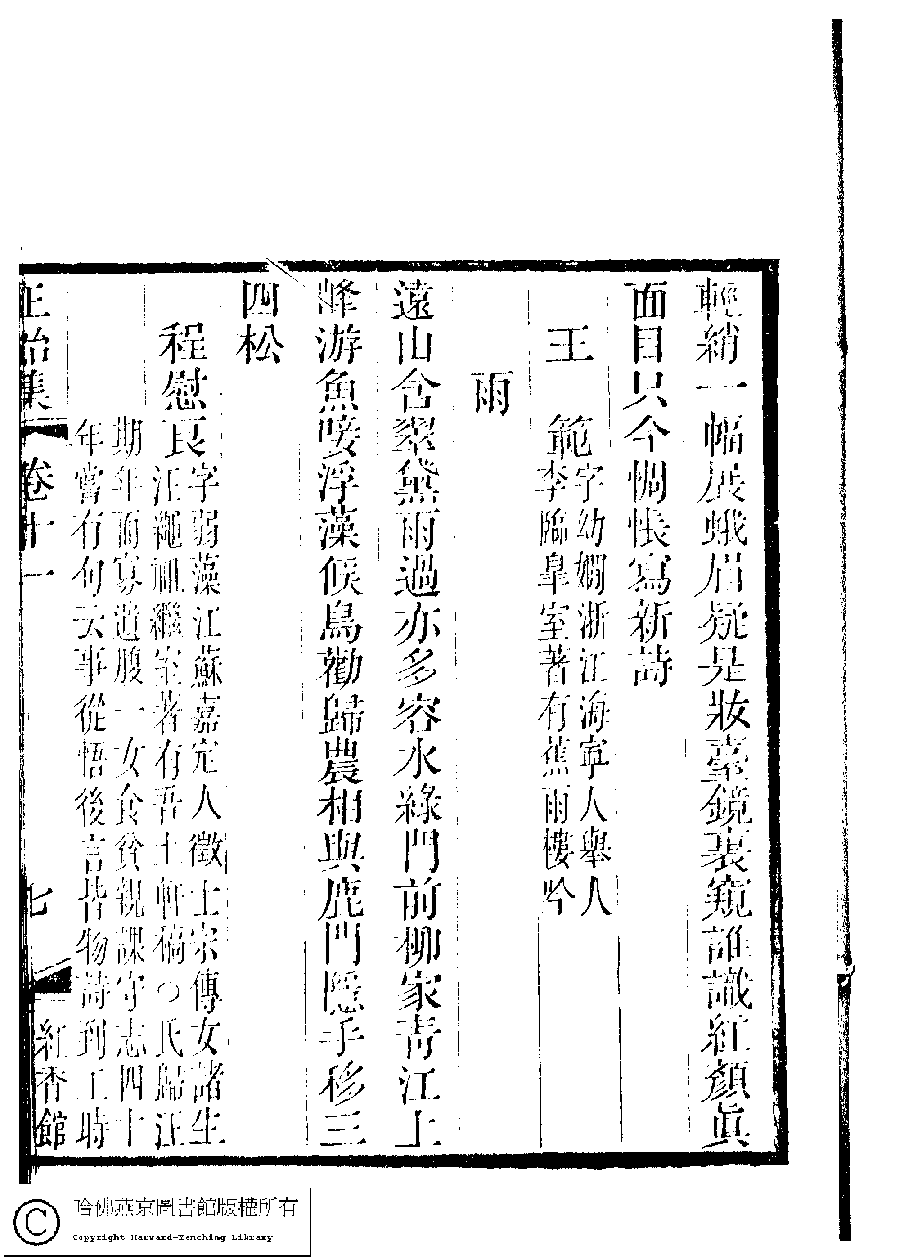 輕綃一幅展蛾眉疑是妝臺鏡裏窺誰識紅顏眞
面目只今惆悵寫新詩
王　範字幼嫺浙江海寧人舉人
李臨皐室著有蕉雨樓吟
雨
遠山含翠黛雨過亦多容水綠門前柳家靑江上
峰游魚唼浮藻候鳥勸歸農相與鹿門隱手移三
四松
程慰良字弱藻江蘇嘉定人徵士宗傳女諸生
汪繩祖繼室著有吾土軒稿○氏歸汪
期年而寡遺腹一女食貧親課守志四十
年嘗有句云事從悟後言皆物詩到工時
正始集　卷十一　七　紅香館
哈佛燕京圖書館版權所有
Copyright Harvard-Yenching Library